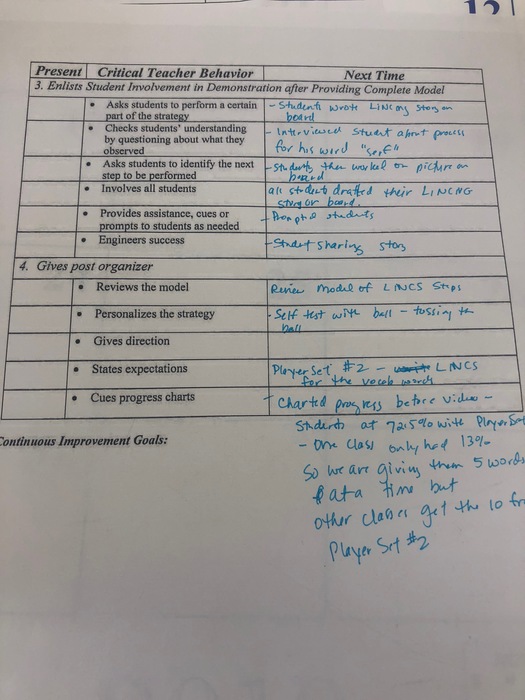 121
Present Critical Teacher Behavior Next Time
3. Enlists Student Involvement in Demonstration after Providing Complete Model
• Asks students to perform a certain
part of the strategy
- Students wrote LINCing story on
board
• Checks students' understanding
by questioning about what they
observed
- Interviewed student about process
for his word "serf"
• Asks students to identify the next
step to be performed
- Students then worked on picture on
board
• Involves all students
all students drafted their LINCNG
story on board.
• Provides assistance, cues or
prompts to students as needed
- Prompted students
• Engineers success
- Student sharing story
4. Gives post organizer
• Reviews the model
Review model of LINCS Steps
• Personalizes the strategy
- Self test with ball - tossing the
ball
• Gives direction
• States expectations
Player Set #2 - LINCS
for the vocab words
• Cues progress charts
- Charted progress before video -
Students at 72.5% with Player Set
- One class only had 13%
So we are giving them 5 words
at a time but
other classes get the 10 fr
Player Set #2
Continuous Improvement Goals: